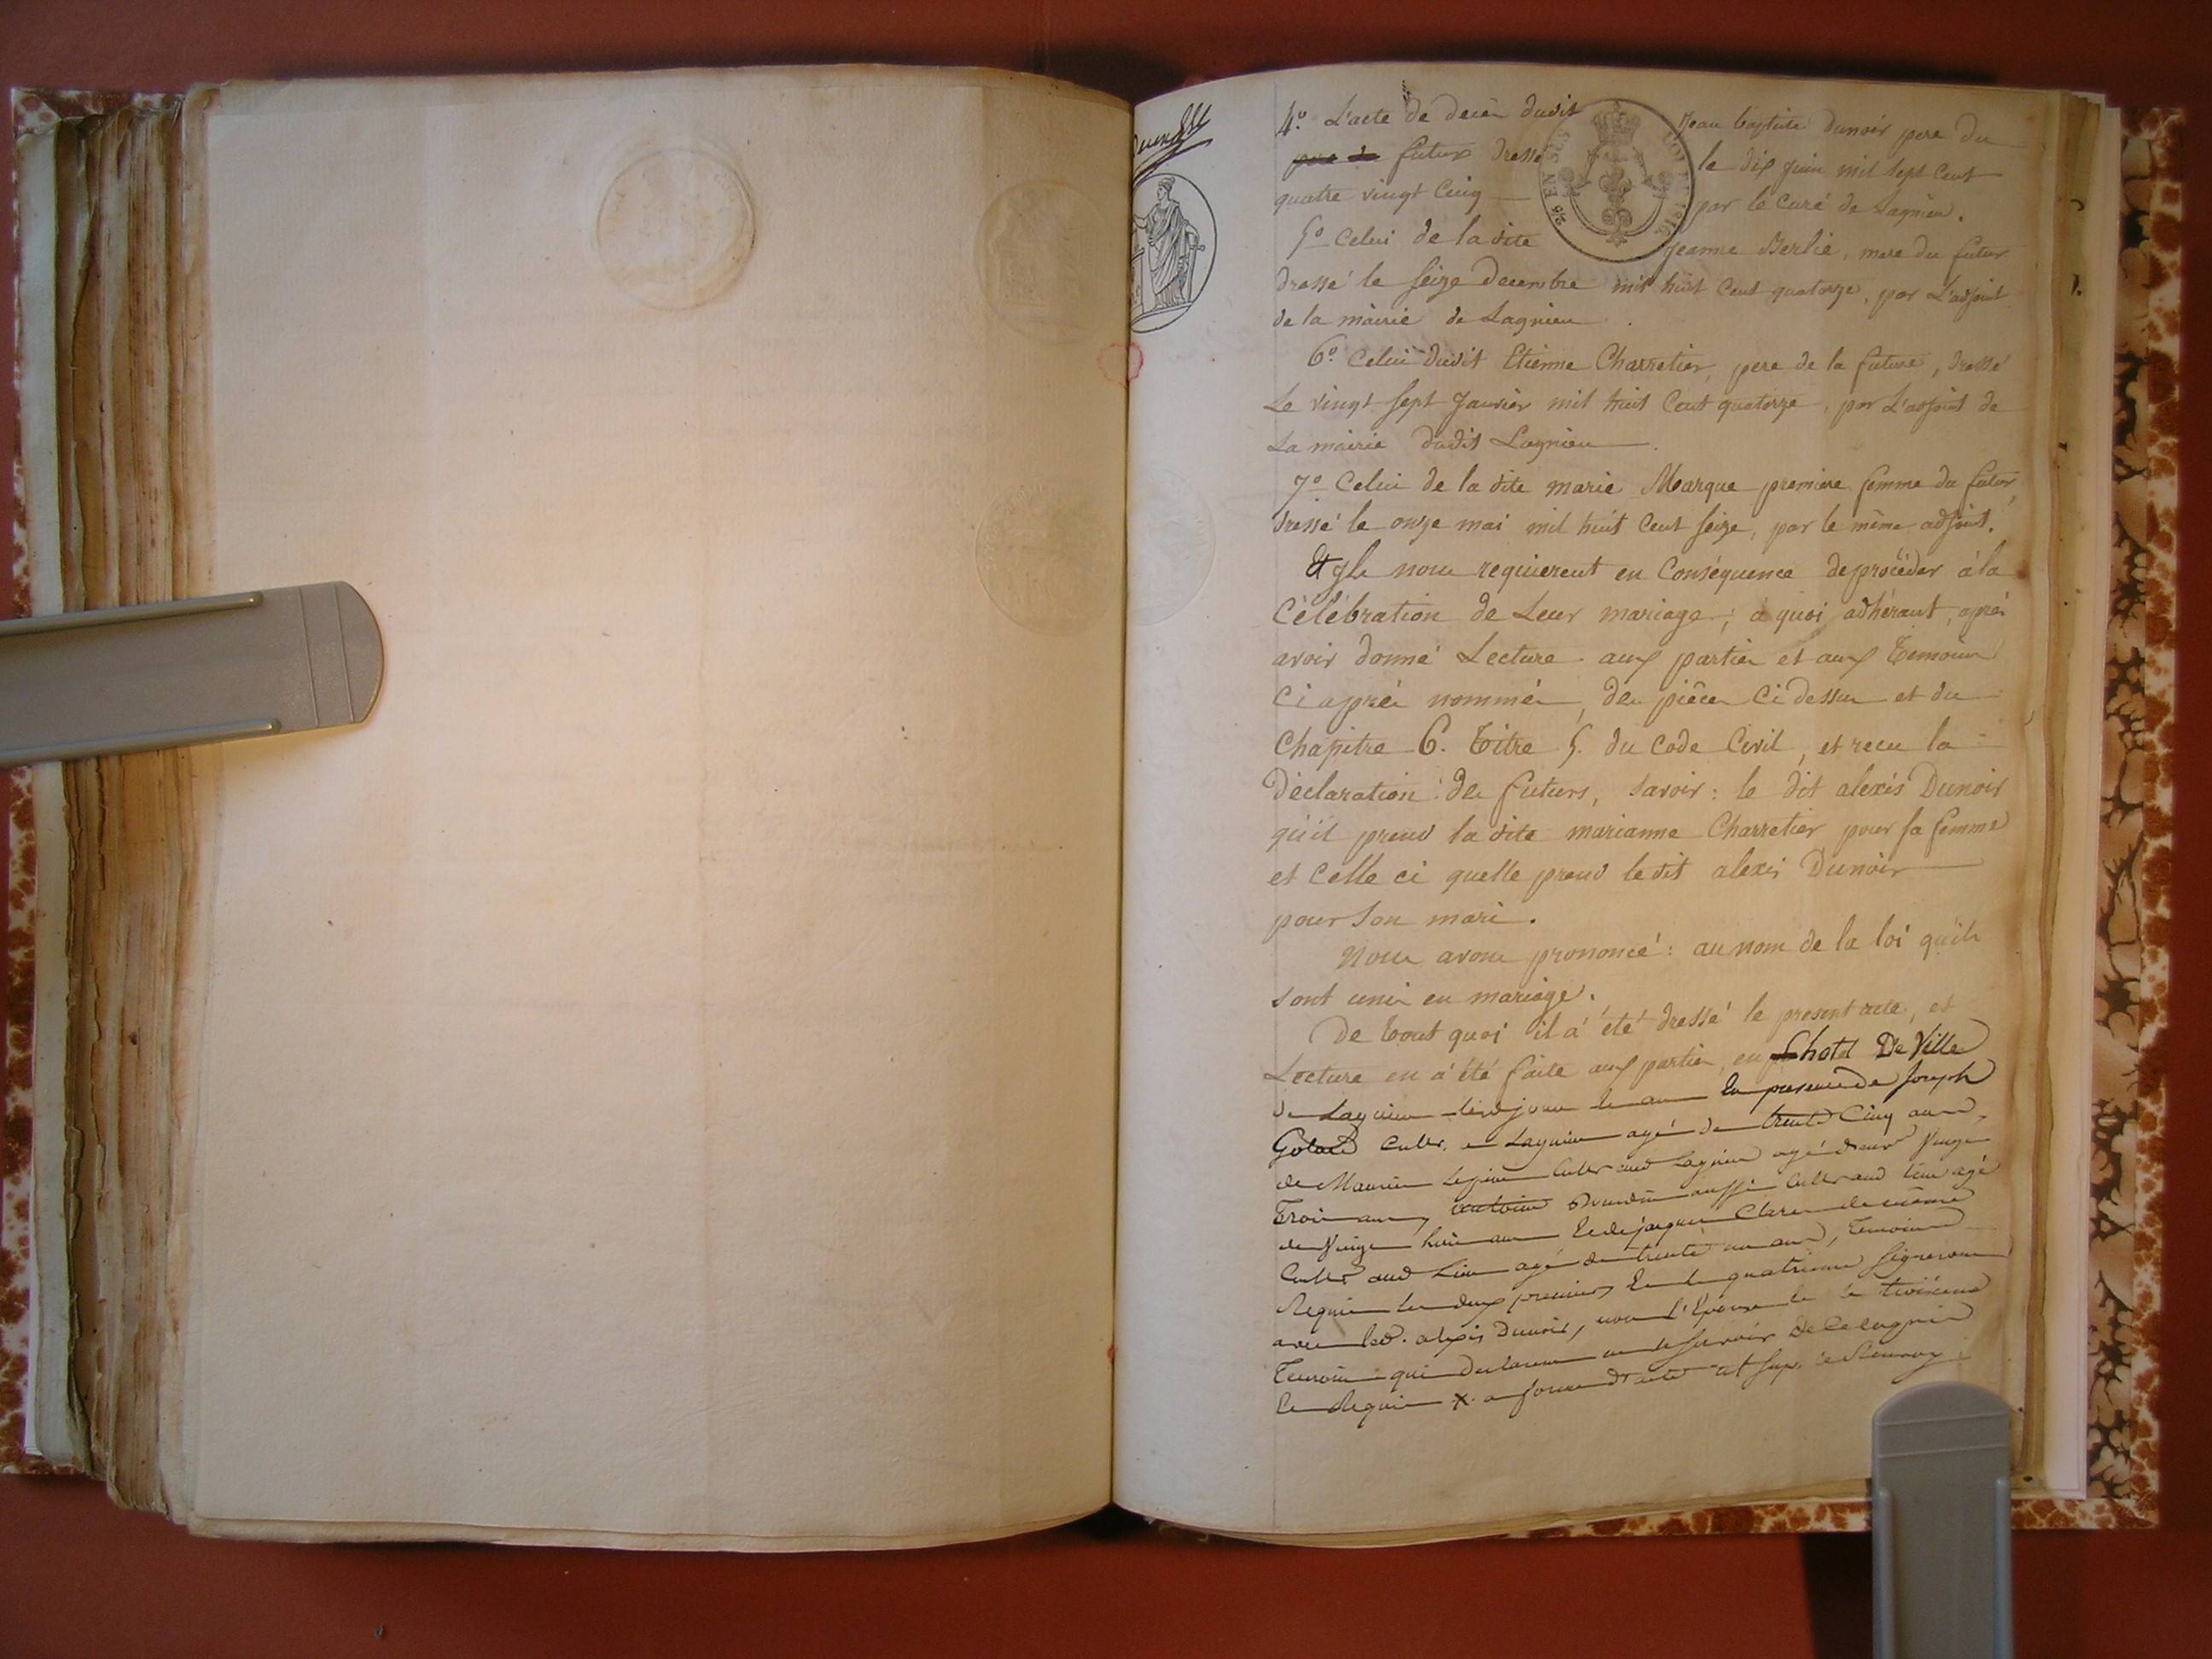 4.° L'acte de décès dudit Jean baptiste Dunoir pere du
futur dressé le dix juin mil sept cent
quatre vingt Cinq par le Curé de Lagnieu.
5.° Celui de la dite Jeanne Berlié, mere du futur
dressé le seize decembre mil huit Cent quatorze, par L'adjoint
de la mairie de Lagnieu.
6.° Celui dudit Etienne Charretier, pere de la future, dressé
Le vingt sept Janvier mil huit Cent quatorze, par L'adjoint de
La mairie dudit Lagnieu.
7.° Celui de la dite marie Marque premiere femme du futur,
dressé le onze mai mil huit Cent seize, par le même adjoint.
Et ils nous requierent en Conséquence de procèder à la
Célébration de Leur mariage; a quoi adhérant, après
avoir donné Lecture aux parties et aux Témoins
Ci après nommés, des pièces Ci dessus et du
Chapitre 6. Titre 5. du Code Civil, et recu la
Déclaration des futurs, savoir: le dit alexis Dunoir
qu'il prend la dite marianne Charretier pour sa femme
et Celle ci quelle prend le dit alexis Dunoir
pour Son mari.
Nous avons prononcé: au nom de la loi qu'ils
sont unis en mariage.
De tout quoi il a été dressé le present acte, et
Lecture en a été faite aux parties, en Lhotel De Ville
de Lagnieu lesd jour et an En presence de Joseph
Golard Cultr. a Lagnieu agé de trente Cinq ans,
de Maurice Cultr aud Lagnieu agé de Vingt
Trois ans, antoine aussi Cultr aud lieu agé
de Vingt huit ans Et de jacques Claren de même
Cultr aud Lieu agé de trente un ans, Temoins
Requis les deux premiers Et le quatrieme Signeront
avec led. alexis Dunoir, non l'Epouse Et le troisieme
Temoin qui declarent ne le savoir De Ce enquis
Et Requis